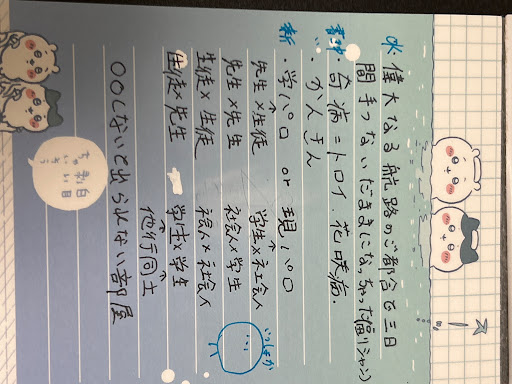 OK・偉大なる航路のご都合で三日
間手つないだままになっちゃった
奇病=トロイ、花咲病.
・かんきん
新・学パロ or 現パロ
先生×生徒 学生×社会人
先生×先生 社会人×学生
生徒×生徒 社会人×社会人
生徒×先生 学生×学生
他行同士
〇〇しないと出られない部屋